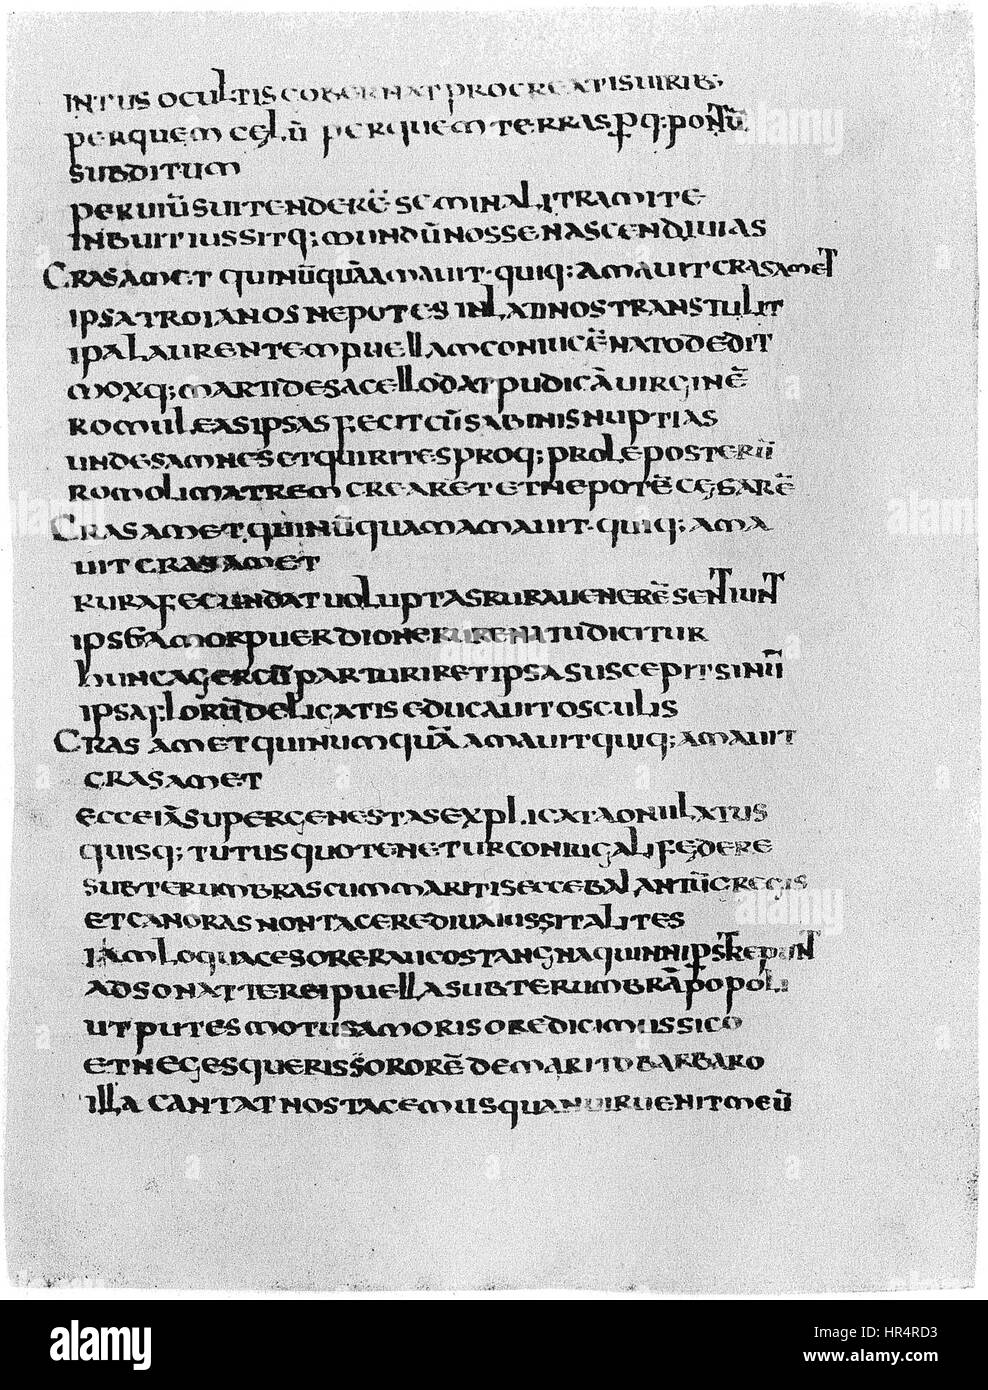 INTUS OCULTIS GOBERNAT PROCREATIS UIRIB;
PERQUEM CĘLŪ PERQUEM TERRAS P̱Q; PONTŪ
SUBDITUM
PERUIŪ SUI TENDERĒ SEMINALI TRAMITE
INBUIT IUSSITQ; MUNDŪ NOSSE NASCENDI UIAS
CRAS AMET QUI NŪQUĀ AMAUIT · QUIQ; AMAUIT CRAS AMET
IPSA TROIANOS NEPOTES IN LATINOS TRANSTULIT
IPA LAURENTEM PUELLAM CONIUGĒ NATO DEDIT
MOXQ; MARTI DE SACELLO DAT PUDICĀ UIRGINĒ
ROMULEAS IPSAS FECIT CŪ SABINIS NUPTIAS
UNDE SAMNES ET QUIRITES PROQ; PROLE POSTERŪ
ROMOLI MATREM CREARET ET NEPOTĒ CĘSARĒ
CRAS AMET. QUI NŪQUAM AMAUIT · QUIQ; AMA
UIT CRAS AMET
RURA FECUNDAT UOLUPTAS RURA UENERĒ SENTIUNT
IPSE AMOR PUER DIONE RURE NATUS DICITUR
HUNC AGER CŪ PARTURIRET IPSA SUSCEPIT SINŪ
IPSA FLORŪ DELICATIS EDUCAUIT OSCULIS
CRAS AMET QUI NUMQUĀ AMAUIT QUIQ; AMAUIT
CRAS AMET
ECCE IĀ SUPER GENESTAS EXPLICAT AONII LATUS
QUISQ; TUTUS QUO TENETUR CONIUGALI FĘDERE
SUBTER UMBRAS CUM MARITIS ECCE BALANTŪ GREGIS
ET CANORAS NON TACERE DIUA IUSSIT ALITES
IAM LOQUACES ORE RAUCO STANGNA QUINNI PSTREPUNT
ADSONAT TEREI PUELLA SUBTER UMBRĀ POPOLI
UT PUTES MOTUS AMORIS ORE DICI MUSSICO
ET NEGES QUERI SSORORĒ DE MARITO BARBARO
ILLA CANTAT NOS TACEMUS QUAN UIR UENIT MEŪ
alamy
Image ID: HR4RD3
www.alamy.com